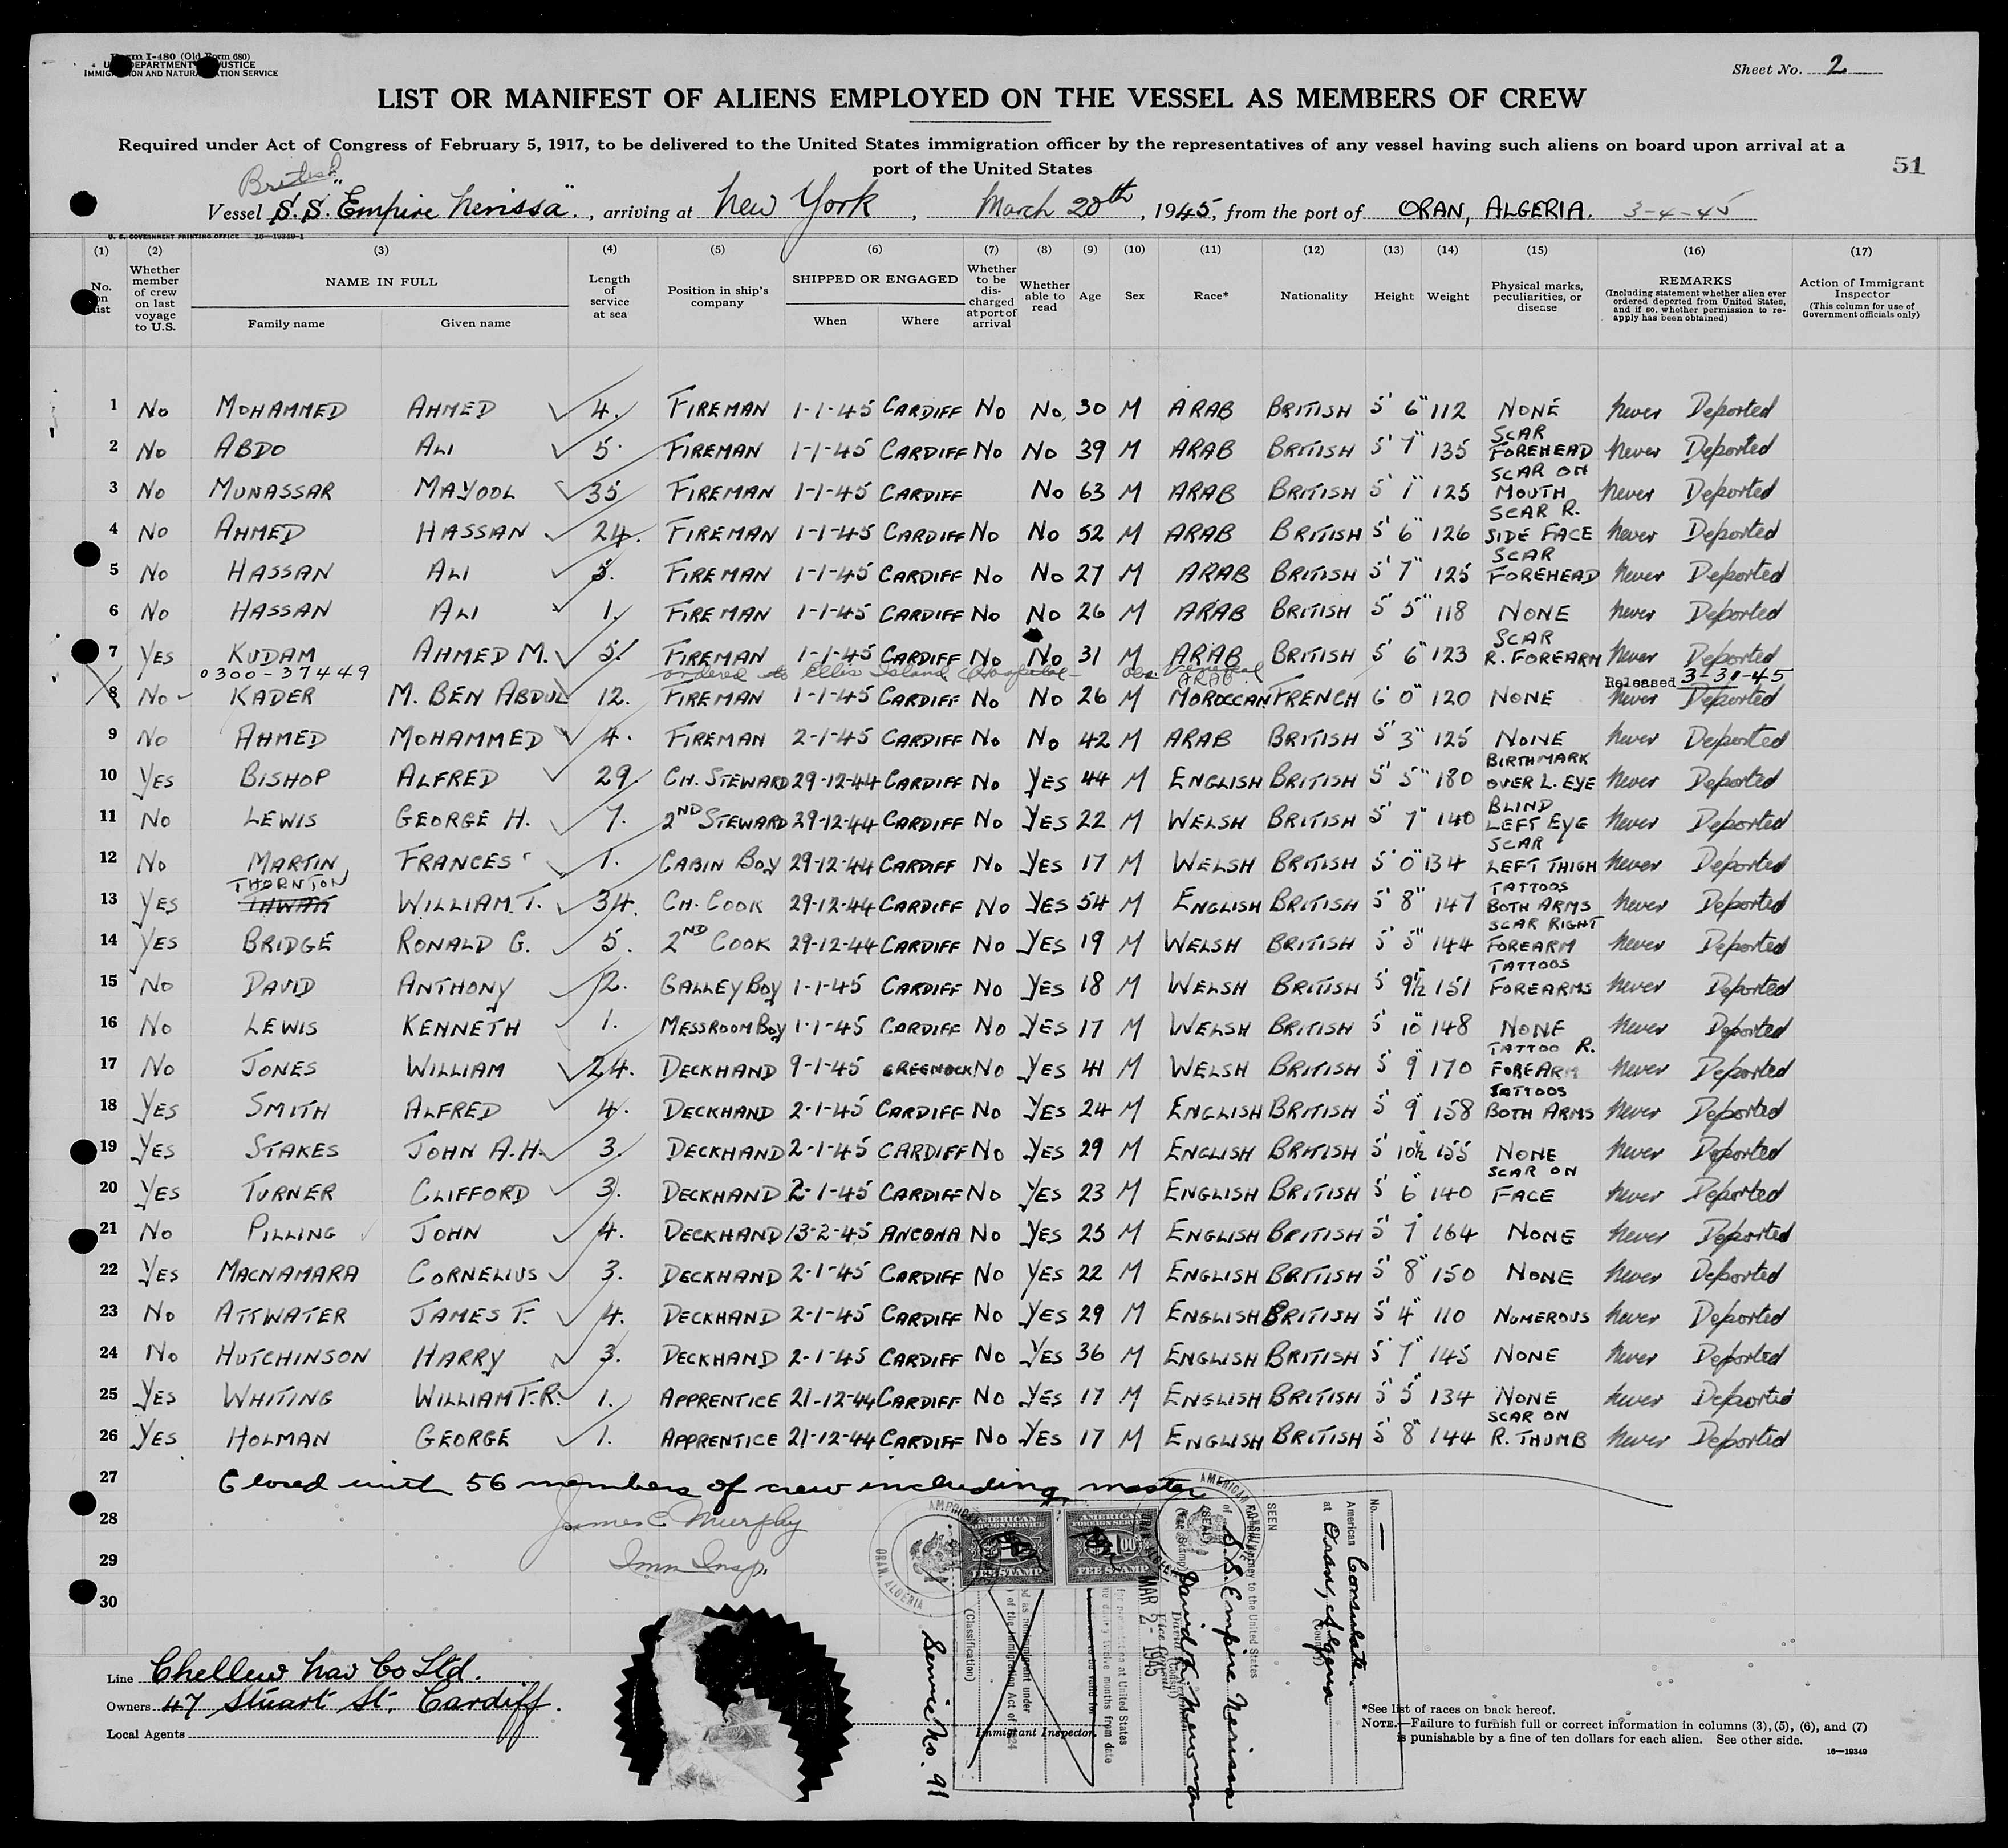 Form I-480 (Old Form 680)
U. S. DEPARTMENT OF JUSTICE
IMMIGRATION AND NATURALIZATION SERVICE
Sheet No. 2
LIST OR MANIFEST OF ALIENS EMPLOYED ON THE VESSEL AS MEMBERS OF CREW
Required under Act of Congress of February 5, 1917, to be delivered to the United States immigration officer by the representatives of any vessel having such aliens on board upon arrival at a
port of the United States
51
British
Vessel S.S. "Empire Nerissa", arriving at New York, March 20th, 1945, from the port of ORAN, ALGERIA. 3-4-45
U. S. GOVERNMENT PRINTING OFFICE 16—19349-1
(1) (2) (3) (4) (5) (6) (7) (8) (9) (10) (11) (12) (13) (14) (15) (16) (17)
No. on list
Whether member of crew on last voyage to U.S.
NAME IN FULL
Family name
Given name
Length of service at sea
Position in ship's company
SHIPPED OR ENGAGED
When
Where
Whether to be discharged at port of arrival
Whether able to read
Age
Sex
Race*
Nationality
Height
Weight
Physical marks, peculiarities, or disease
REMARKS
(Including statement whether alien ever ordered deported from United States, and if so, whether permission to reapply has been obtained)
Action of Immigrant Inspector
(This column for use of Government officials only)
1 No MOHAMMED AHMED 4. FIREMAN 1-1-45 CARDIFF No No. 30 M ARAB BRITISH 5' 6" 112 NONE Never Deported
2 No ABDO ALI 5. FIREMAN 1-1-45 CARDIFF No No 39 M ARAB BRITISH 5' 7" 135 SCAR FOREHEAD Never Deported
3 No MUNASSAR MAYOOL 35 FIREMAN 1-1-45 CARDIFF No 63 M ARAB BRITISH 5' 1" 125 SCAR ON MOUTH Never Deported
4 No AHMED HASSAN 24. FIREMAN 1-1-45 CARDIFF No No 52 M ARAB BRITISH 5' 6" 126 SCAR R. SIDE FACE Never Deported
5 No HASSAN ALI 5. FIREMAN 1-1-45 CARDIFF No No 27 M ARAB BRITISH 5' 7" 125 SCAR FOREHEAD Never Deported
6 No HASSAN ALI 1. FIREMAN 1-1-45 CARDIFF No No 26 M ARAB BRITISH 5' 5" 118 NONE Never Deported
7 Yes KUDAM AHMED M. 5. FIREMAN 1-1-45 CARDIFF No No 31 M ARAB BRITISH 5' 6" 123 SCAR R. FOREARM Never Deported
0300-37449 ordered to Ellis Island Hospital - obs. General Released 3-31-45
8 No KADER M. BEN ABDUL 12. FIREMAN 1-1-45 CARDIFF No No 26 M ARAB MOROCCAN FRENCH 6' 0" 120 NONE Never Deported
9 No AHMED MOHAMMED 4. FIREMAN 2-1-45 CARDIFF No No 42 M ARAB BRITISH 5' 3" 125 NONE Never Deported
10 Yes BISHOP ALFRED 29 CH. STEWARD 29-12-44 CARDIFF No Yes 44 M ENGLISH BRITISH 5' 5" 180 BIRTHMARK OVER L. EYE Never Deported
11 No LEWIS GEORGE H. 7. 2ND STEWARD 29-12-44 CARDIFF No Yes 22 M WELSH BRITISH 5' 7" 140 BLIND LEFT EYE Never Deported
12 No MARTIN FRANCES 1. CABIN BOY 29-12-44 CARDIFF No Yes 17 M WELSH BRITISH 5' 0" 134 SCAR LEFT THIGH Never Deported
13 Yes THORNTON WILLIAM T. 34. CH. COOK 29-12-44 CARDIFF No Yes 54 M ENGLISH BRITISH 5' 8" 147 TATTOOS BOTH ARMS Never Deported
14 Yes BRIDGE RONALD G. 5. 2ND COOK 29-12-44 CARDIFF No Yes 19 M WELSH BRITISH 5' 5" 144 SCAR RIGHT FOREARM Never Deported
15 No DAVID ANTHONY 2. GALLEY BOY 1-1-45 CARDIFF No Yes 18 M WELSH BRITISH 5' 9½ 151 TATTOOS FOREARMS Never Deported
16 No LEWIS KENNETH 1. MESSROOM BOY 1-1-45 CARDIFF No Yes 17 M WELSH BRITISH 5' 10" 148 NONE Never Deported
17 No JONES WILLIAM 24. DECKHAND 9-1-45 GREENOCK No Yes 41 M WELSH BRITISH 5' 9" 170 TATTOO R. FOREARM Never Deported
18 Yes SMITH ALFRED 4. DECKHAND 2-1-45 CARDIFF No Yes 24 M ENGLISH BRITISH 5' 9" 158 TATTOOS BOTH ARMS Never Deported
19 Yes STAKES JOHN A.H. 3. DECKHAND 2-1-45 CARDIFF No Yes 29 M ENGLISH BRITISH 5' 10½ 155 NONE Never Deported
20 Yes TURNER CLIFFORD 3. DECKHAND 2-1-45 CARDIFF No Yes 23 M ENGLISH BRITISH 5' 6" 140 SCAR ON FACE Never Deported
21 No PILLING JOHN 4. DECKHAND 13-2-45 ANCONA No Yes 25 M ENGLISH BRITISH 5' 7" 164 NONE Never Deported
22 Yes MACNAMARA CORNELIUS 3. DECKHAND 2-1-45 CARDIFF No Yes 22 M ENGLISH BRITISH 5' 8" 150 NONE Never Deported
23 No ATTWATER JAMES T. 4. DECKHAND 2-1-45 CARDIFF No Yes 29 M ENGLISH BRITISH 5' 4" 110 NUMEROUS Never Deported
24 No HUTCHINSON HARRY 3. DECKHAND 2-1-45 CARDIFF No Yes 36 M ENGLISH BRITISH 5' 7" 145 NONE Never Deported
25 Yes WHITING WILLIAM T.R. 1. APPRENTICE 21-12-44 CARDIFF No Yes 17 M ENGLISH BRITISH 5' 5" 134 NONE Never Deported
26 Yes HOLMAN GEORGE 1. APPRENTICE 21-12-44 CARDIFF No Yes 17 M ENGLISH BRITISH 5' 8" 144 SCAR ON R. THUMB Never Deported
27 Closed with 56 members of crew including master
28 James C Murphy
29 Imm Insp.
30
No. —
American Consulate
at Oran, Algeria
(Country)
SEEN
S.S. Empire Nerissa
(SEAL)
(Fee Stamp)
MAR 2- 1945
AMERICAN FOREIGN SERVICE
$1.00
FEE STAMP
AMERICAN FOREIGN SERVICE
$1.00
FEE STAMP
ORAN, ALGERIA
(Classification)
Service No. 91
Line Chellew Nav Co Ltd.
Owners 47 Stuart St, Cardiff.
Local Agents
Immigrant Inspector.
*See list of races on back hereof.
NOTE.—Failure to furnish full or correct information in columns (3), (5), (6), and (7)
is punishable by a fine of ten dollars for each alien. See other side.
16—19349